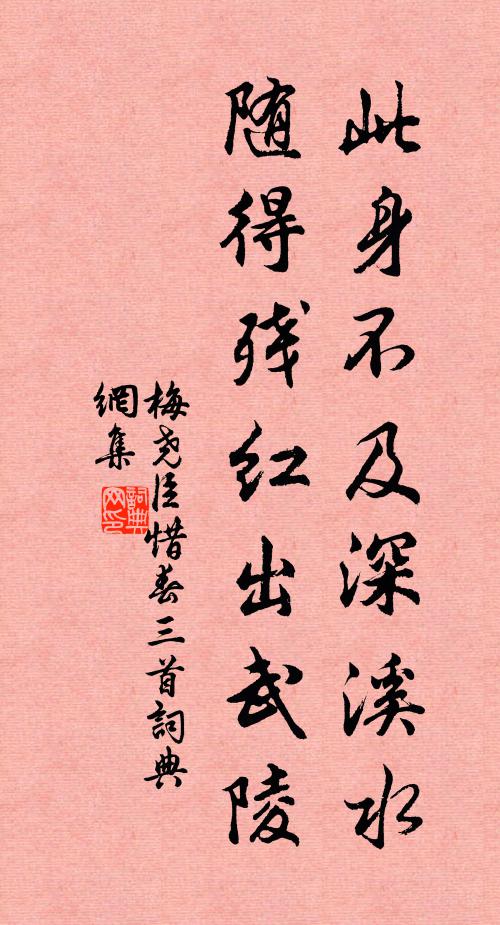 此身不及深溪水
随得残红出武陵
梅尧臣惜春三首詞典
網集
詞典网印